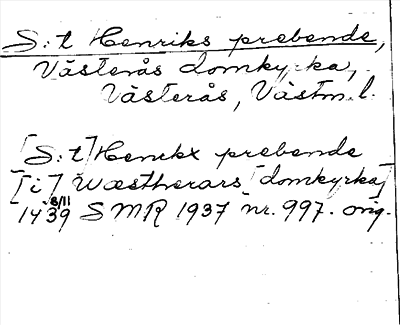 S:t Henriks prebende,
Västerås domkyrka,
Västerås, Västm. l.
[S:t] Henrekx prebende
[i] Wæstherars [domkyrka]
1439 8/11 SMR 1937 nr. 997. orig.